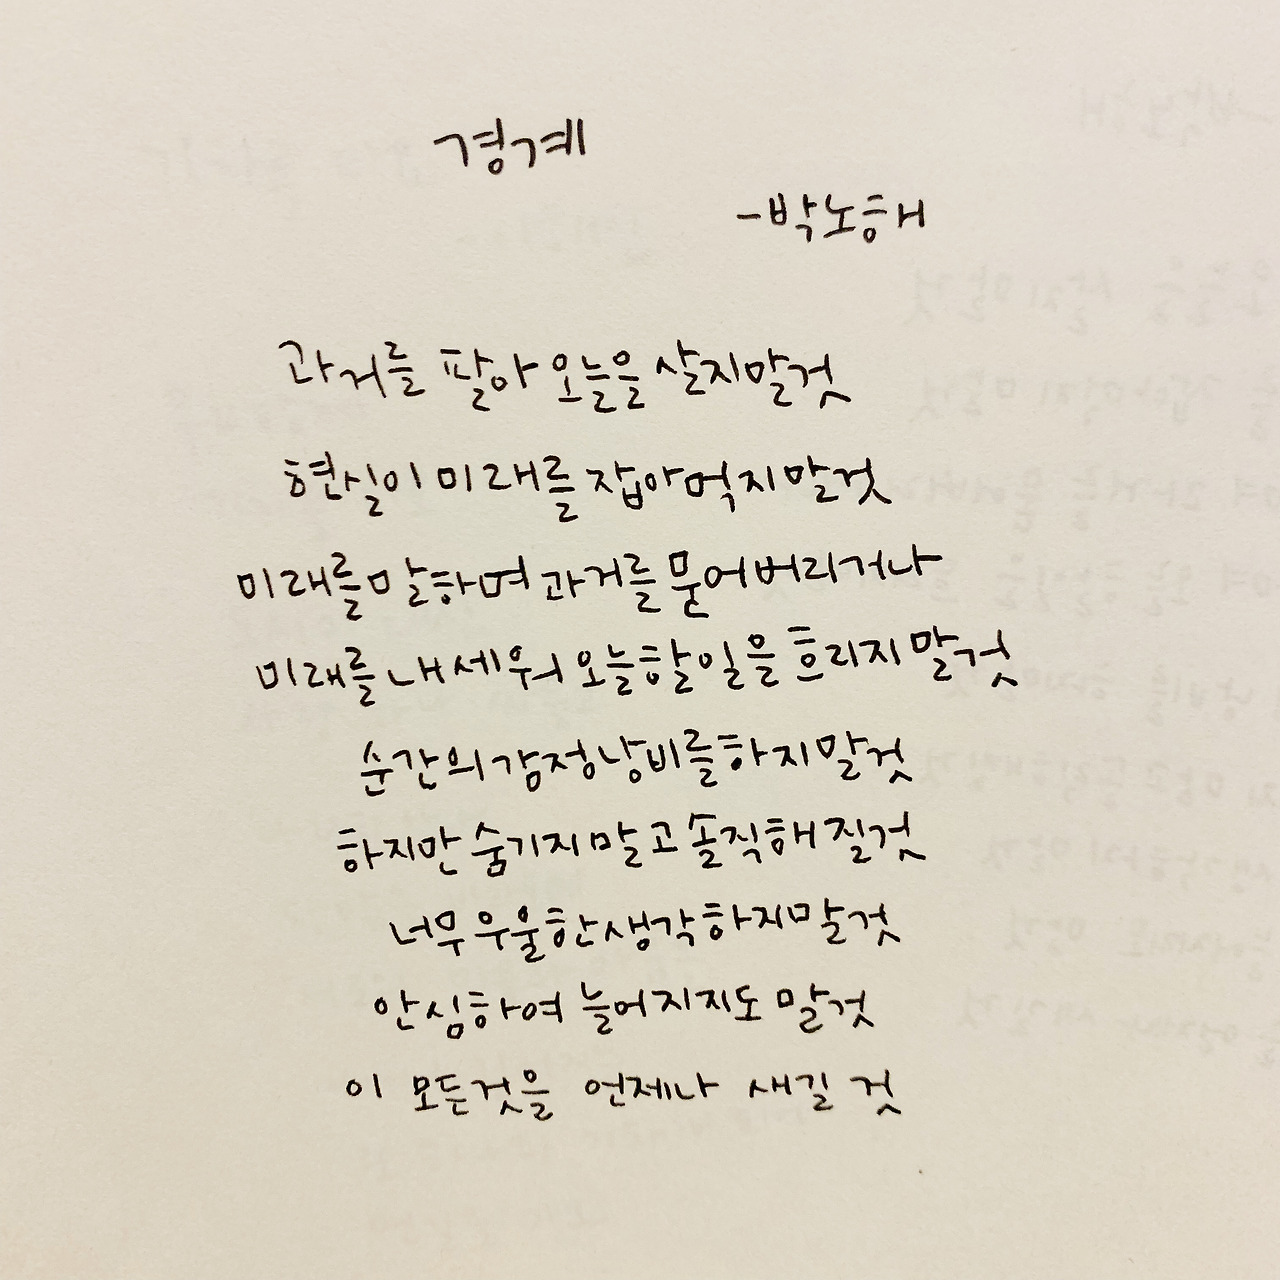 경계
-박노해
과거를 팔아 오늘을 살지말것
현실이 미래를 잡아먹지말것
미래를 말하며 과거를 묻어버리거나
미래를 내세워 오늘할일을 흐리지말것
순간의 감정낭비를하지말것
하지만 숨기지말고 솔직해질것
너무 우울한생각하지말것
안심하여 늘어지지도 말것
이 모든것을 언제나 새길 것